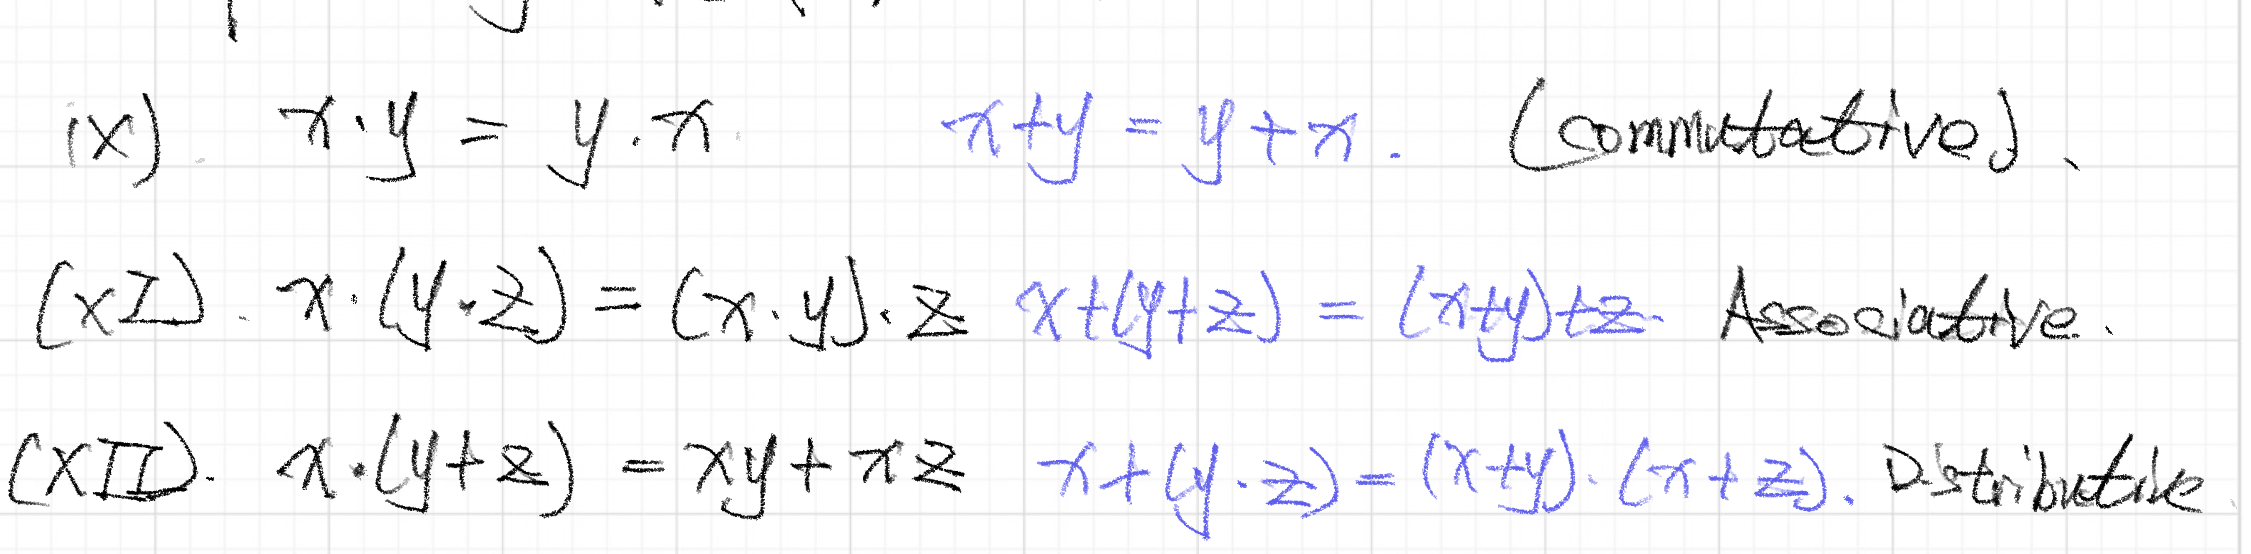 ix). x·y = y·x x+y = y+x. (commutative).
(xI). x·(y·z) = (x·y)·z x+(y+z) = (x+y)+z. Associative.
(xII). x·(y+z) = xy+xz x+(y·z) = (x+y)·(x+z). Distributive